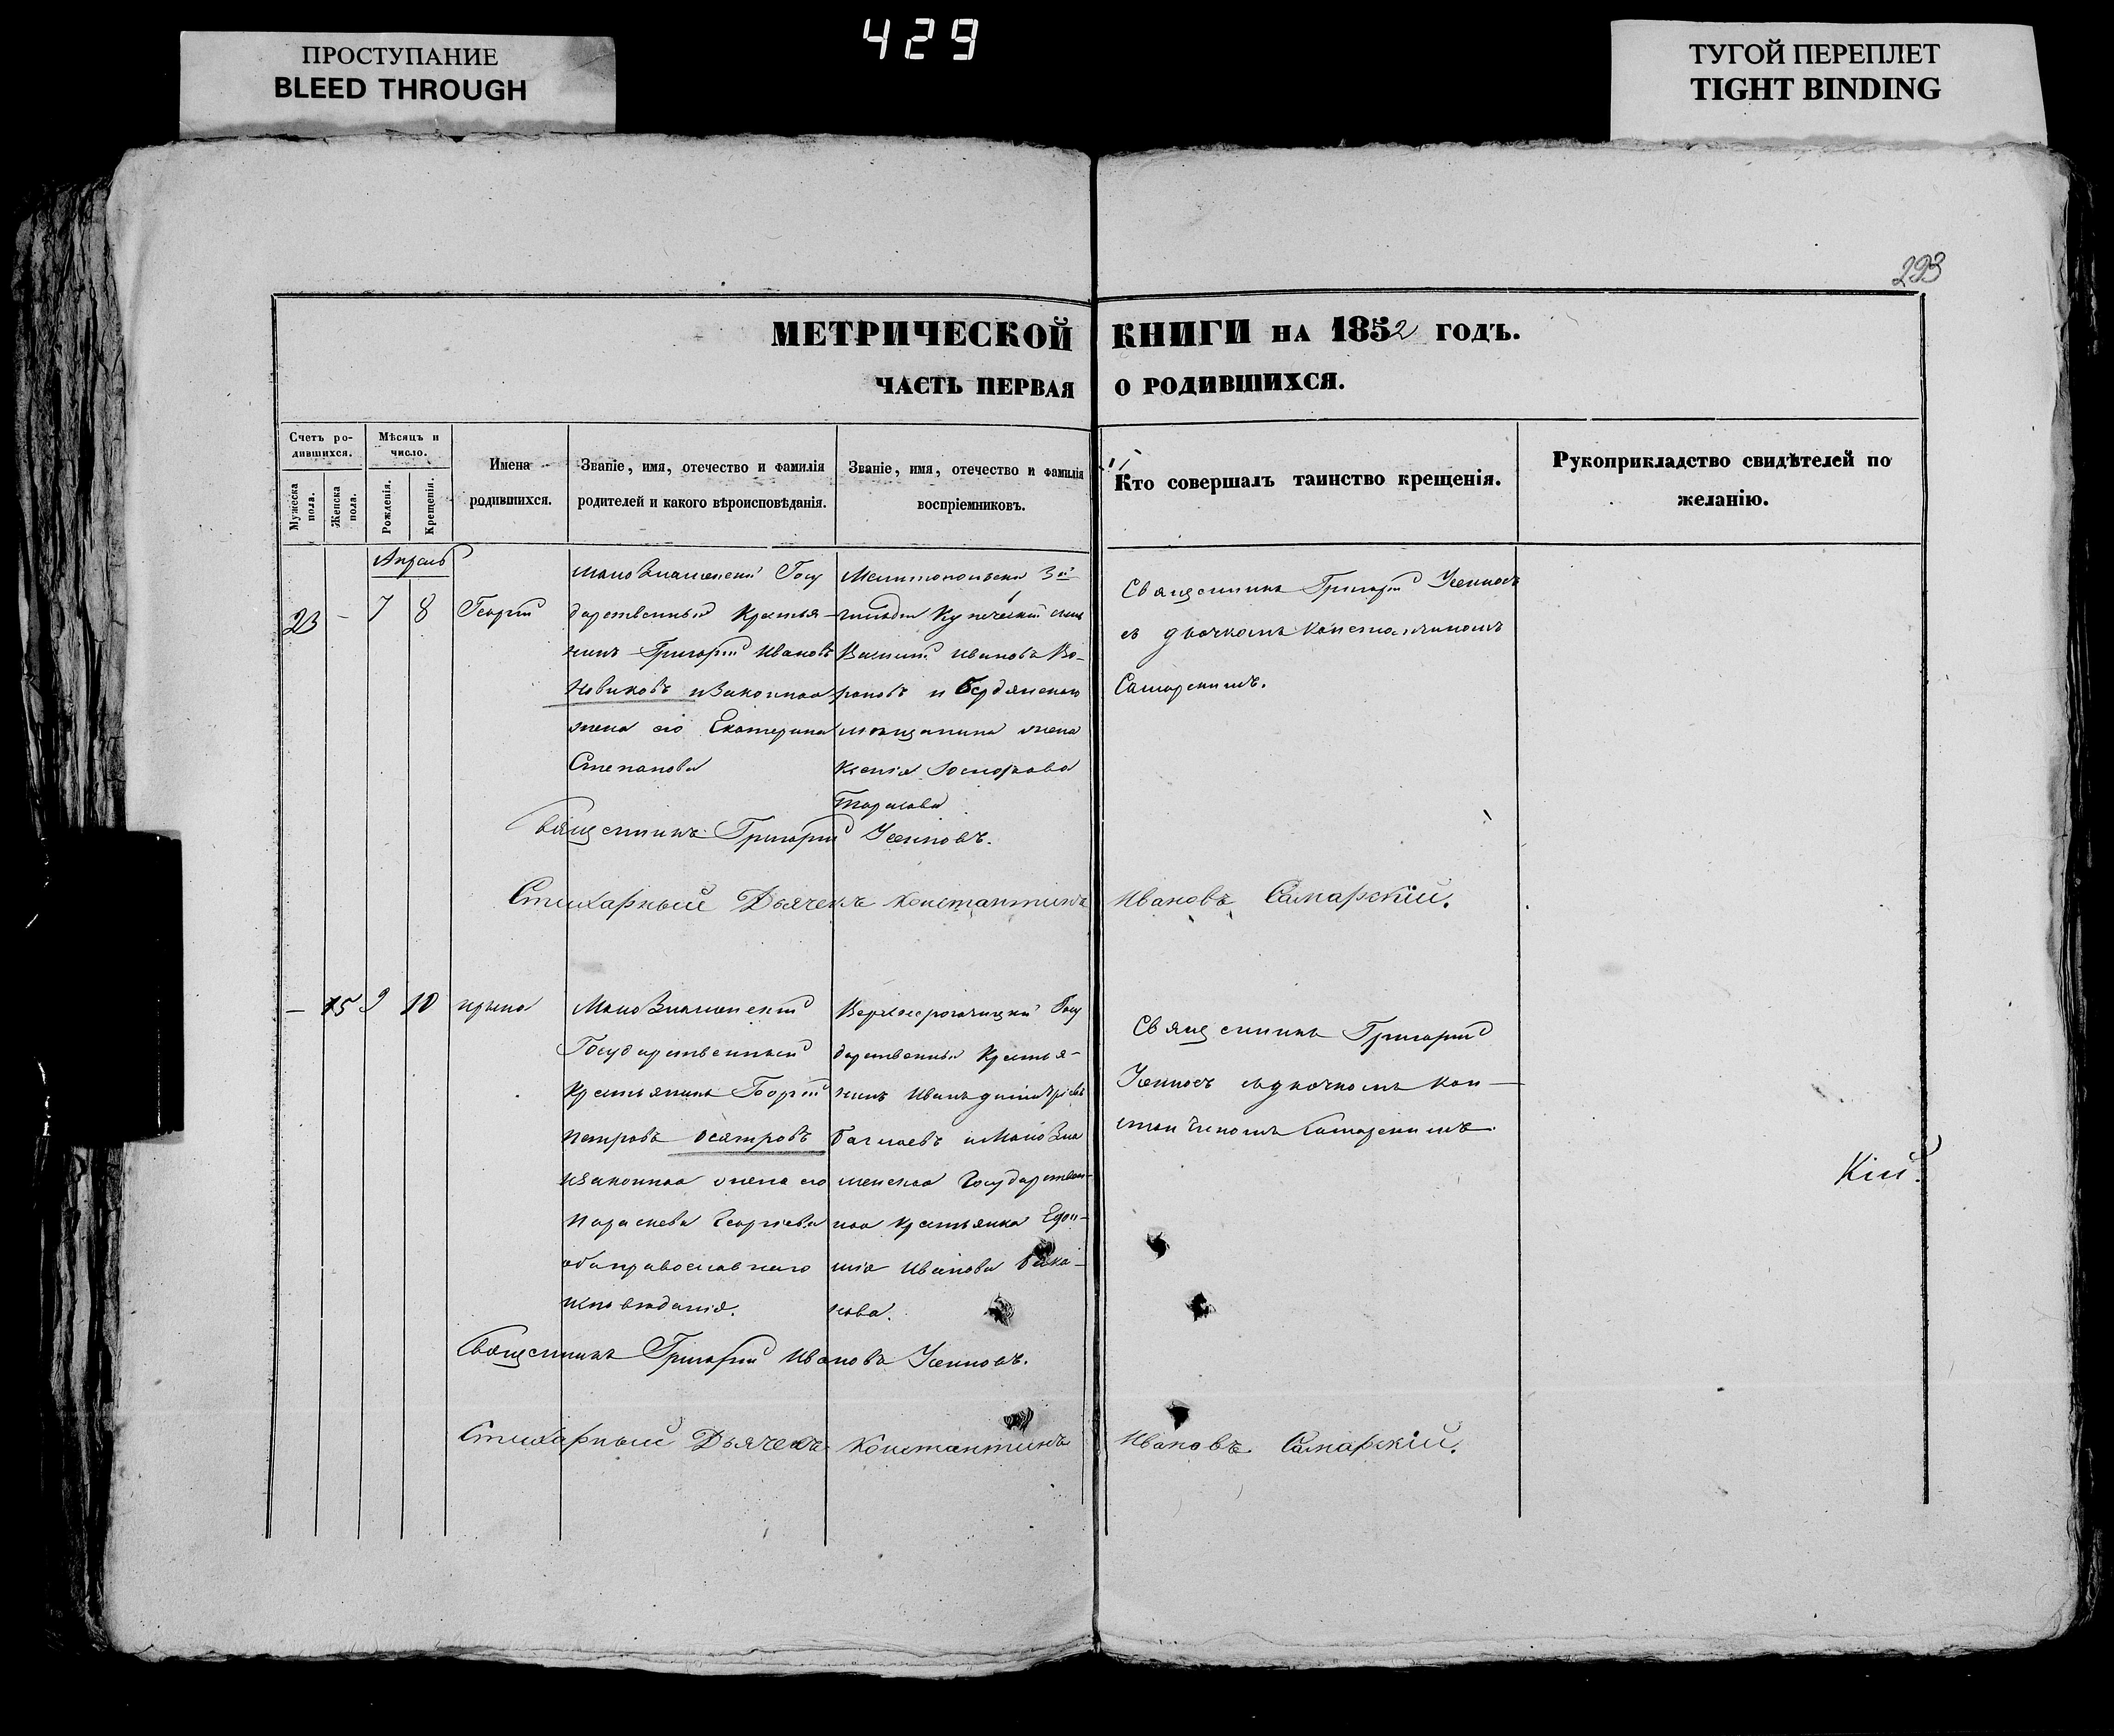 ПРОСТУПАНИЕ
BLEED THROUGH
429
ТУГОЙ ПЕРЕПЛЕТ
TIGHT BINDING
293
МЕТРИЧЕСКОЙ КНИГИ НА 1852 ГОДЪ.
ЧАСТЬ ПЕРВАЯ О РОДИВШИХСЯ.
Счетъ ро-
дившихся.
Мужеска
пола.
Женска
пола.
Мѣсяцъ и
число.
Рожденія.
Крещенія.
Имена
родившихся.
Званіе, имя, отечество и фамилія
родителей и какого вѣроисповѣданія.
Званіе, имя, отечество и фамилія
воспріемниковъ.
Кто совершалъ таинство крещенія.
Рукоприкладство свидѣтелей по
желанію.
Апрель
23 - 7 8 Георгій
Малознаменскій Госу
дарственный Крестья-
нинъ Григорій Ивановъ
Новиковъ и Законная
жена его Екатерина
Степанова
Мелитопольскій 3й
гильдіи Купеческій сынъ
Василій Ивановъ Во-
роновъ и Бердянскаго
мѣщанина жена
Ксенія
Тарасова
Священникъ Григорій
съ дьячкомъ Константиномъ
Самарскимъ.
Священникъ Григорій
Стихарный Дьячекъ Константинъ Ивановъ Самарскій.
— 15 9 10 Ирина
Малознаменскій
Государственный
Крестьянинъ Георгій
Петровъ Осятровъ
и законная жена его
Параскева Георгіева
оба православнаго
исповѣданія.
Верхнерогачицкій Госу
дарственный Крестья-
нинъ Иванъ Димитріевъ
и Малозна
менская Государствен-
ная Крестьянка Евфи-
мія Иванова Бака-
нова.
Священникъ Григорій
съ дьячкомъ Кон-
стантиномъ Самарскимъ.
Кій.
Священникъ Григорій Ивановъ
Стихарный Дьячекъ Константинъ Ивановъ Самарскій.